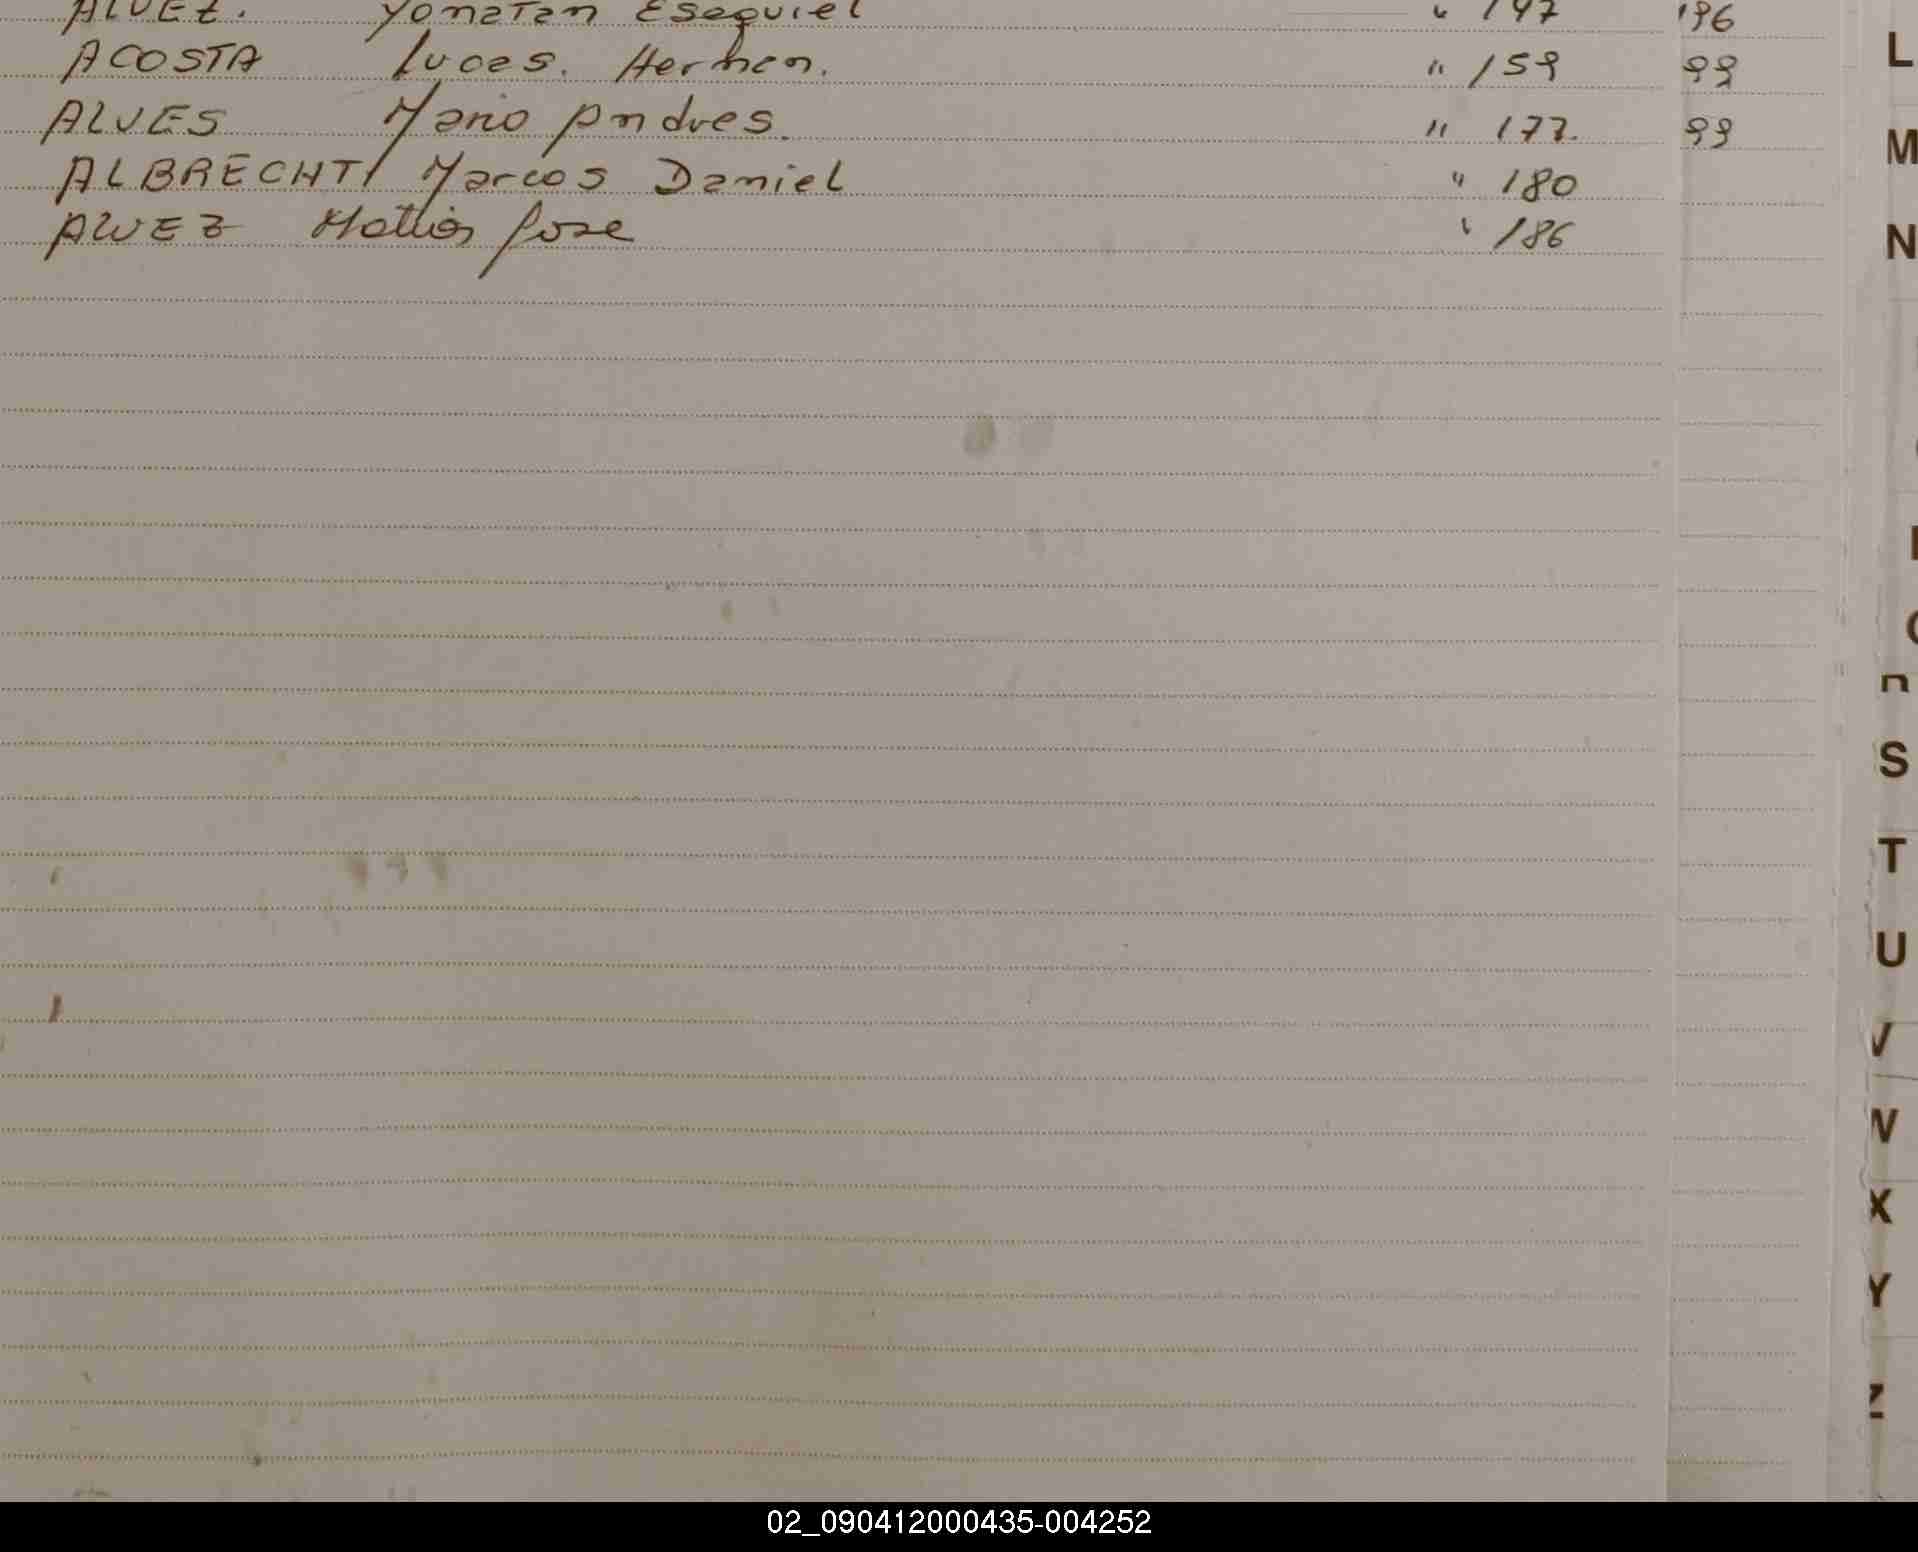 ALVEZ. Yonatan Esequiel " 147 196
ACOSTA Lucas. Hernan. " 159 99
ALVES Mario Andres. " 177. 99
ALBRECHT Marcos Daniel " 180
ALVEZ Matias Jose " 186
L
M
N
S
T
U
V
W
X
Y
Z
02_090412000435-004252